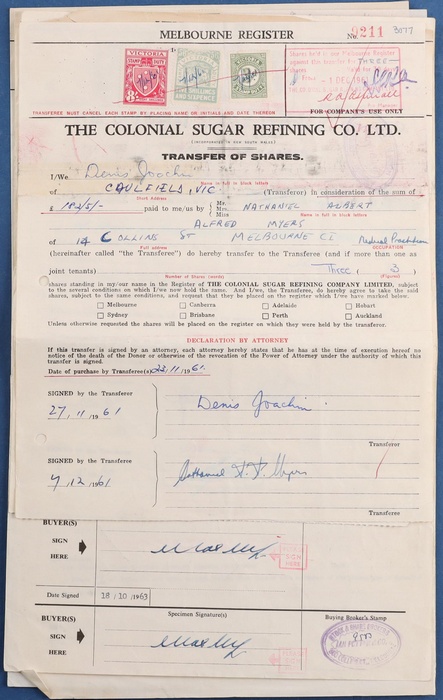 MELBOURNE REGISTER
No. 9211
3077
VICTORIA
STAMP DUTY
TRANSFEREE MUST CANCEL EACH STAMP BY PLACING NAME OR INITIALS AND DATE THEREON
FOR COMPANY'S USE ONLY
THE COLONIAL SUGAR REFINING CO. LTD.
(INCORPORATED IN NEW SOUTH WALES)
TRANSFER OF SHARES.
I/We Denis Joachim
Name in full in block letters
of CAULFIELD, VIC. (Transferor) in consideration of the sum of
Short Address
£ 182/5/- paid to me/us by Mr. Mrs. Miss NATHANIEL ALBERT
Name in full in block letters
ALFRED MYERS
of 14 COLLINS St MELBOURNE C1 Medical Practitioner
Full address
OCCUPATION
(hereinafter called "the Transferee") do hereby transfer to the Transferee (and if more than one as
joint tenants) Three ( 3 )
Number of Shares (words)
(Figures)
shares standing in my/our name in the Register of THE COLONIAL SUGAR REFINING COMPANY LIMITED, subject
to the several conditions on which I/we now hold the same. And I/we, the Transferee, do hereby agree to take the said
shares, subject to the same conditions, and request that they be placed on the register which I/we have marked below.
Melbourne Canberra Adelaide Hobart
Sydney Brisbane Perth Auckland
Unless otherwise requested the shares will be placed on the register on which they were held by the transferor.
DECLARATION BY ATTORNEY
If this transfer is signed by an attorney, each attorney hereby states that he has at the time of execution hereof no
notice of the death of the Donor or otherwise of the revocation of the Power of Attorney under the authority of which this
transfer is signed.
Date of purchase by Transferee(s) 23.11./1961.
SIGNED by the Transferor
27.11./1961
Denis Joachim
Transferor
SIGNED by the Transferee
7.12./1961
Nathaniel A. A. Myers
Transferee
BUYER(S)
SIGN
HERE
PLEASE
SIGN
HERE
Date Signed 18/10/1963
BUYER(S)
SIGN
HERE
Specimen Signature(s)
Buying Broker's Stamp